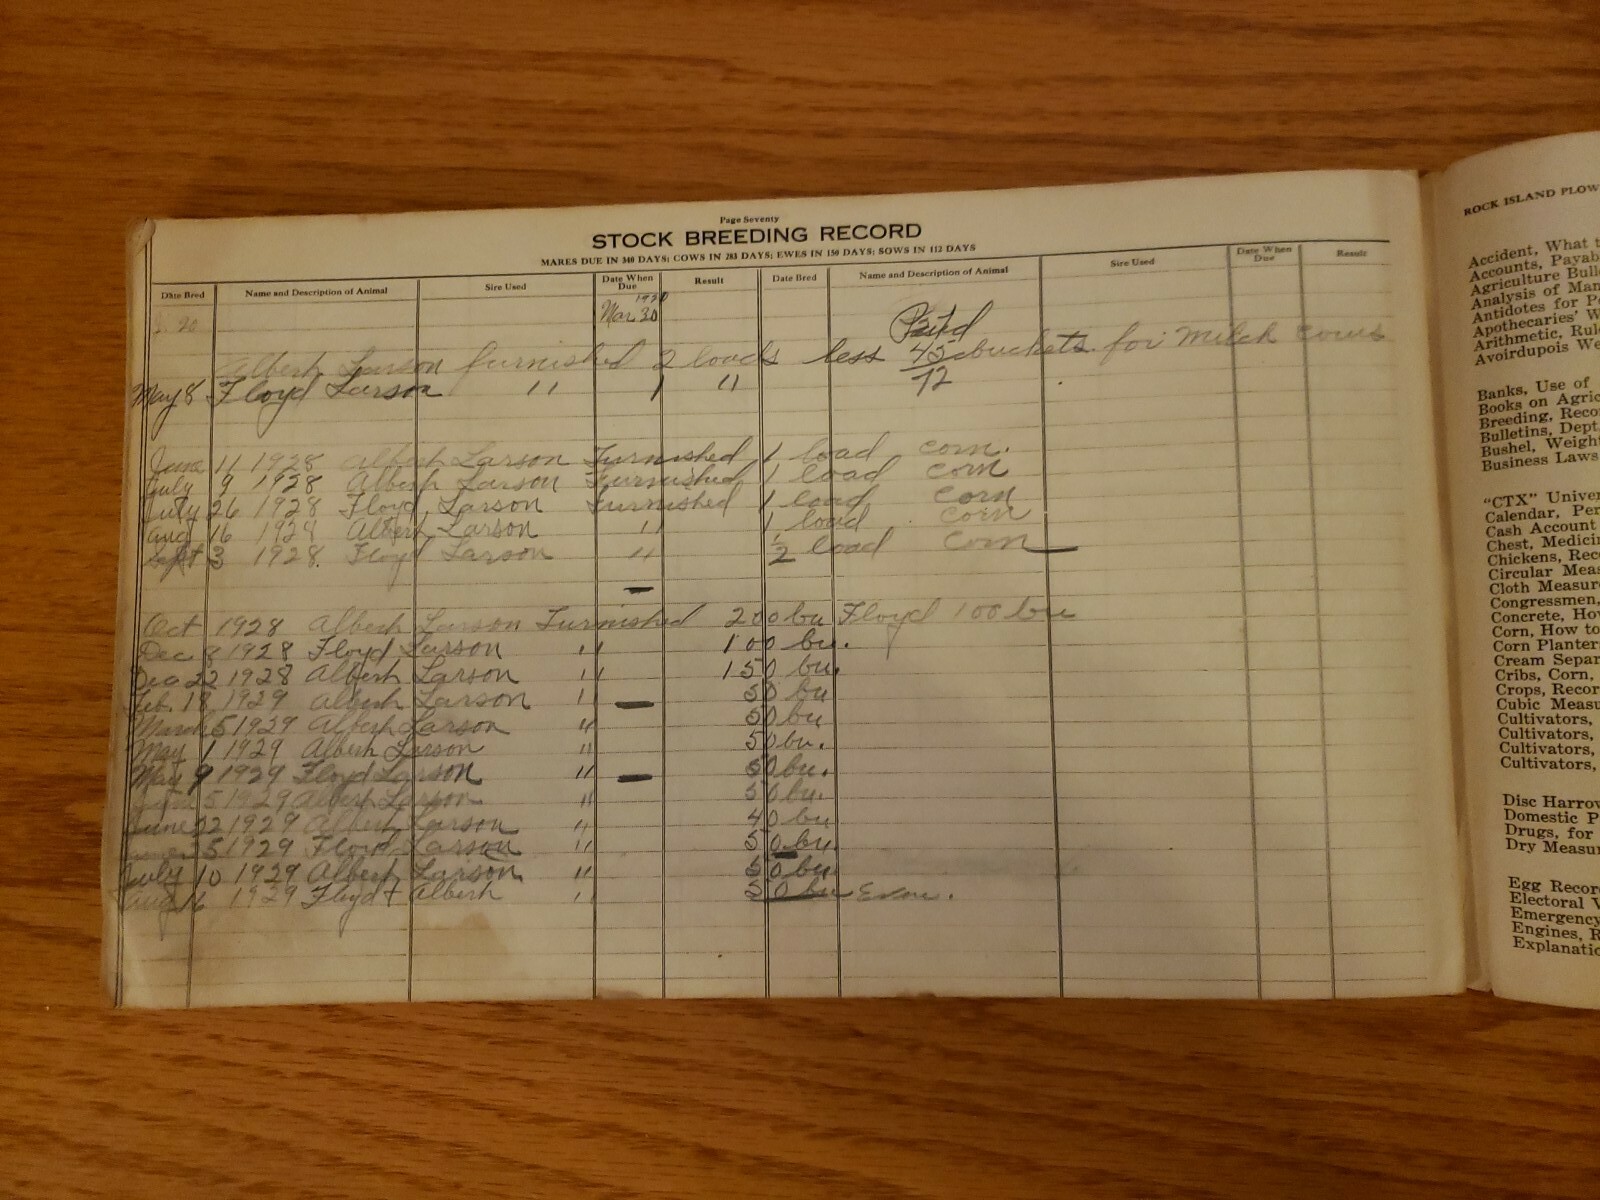 Page Seventy
STOCK BREEDING RECORD
MARES DUE IN 340 DAYS; COWS IN 283 DAYS; EWES IN 150 DAYS; SOWS IN 112 DAYS
Date Bred Name and Description of Animal Sire Used Date When Due Result Date Bred Name and Description of Animal Sire Used Date When Due Result
Mar 30
Albert Larson furnished 2 loads less 45 buckets for Milch cows
May 8 Floyd Larson " 1 " 72
June 11 1928 Albert Larson Furnished 1 load corn.
July 9 1928 Albert Larson Furnished 1 load corn
July 26 1928 Floyd Larson Furnished 1 load corn
aug 16 1928 Albert Larson " 1 load corn
Sept 3 1928. Floyd Larson " 1/2 load corn
Oct 1928 Albert Larson Furnished 200 bu Floyd 100 bu
Dec 8 1928 Floyd Larson " 100 bu.
Dec 22 1928 Albert Larson " 150 bu.
Feb. 18 1929 Albert Larson " 50 bu
March 5 1929 Albert Larson " 50 bu
May 1 1929 Albert Larson " 50 bu.
May 9 1929 Floyd Larson " 50 bu.
June 5 1929 Albert Larson " 50 bu.
June 22 1929 Albert Larson " 40 bu
5 1929 Floyd Larson " 50 bu
July 10 1929 Albert Larson " 50 bu
aug 16 1929 Floyd + Albert " 50 bu
ROCK ISLAND PLOW
Accident, What
Accounts, Payab
Agriculture Bull
Analysis of Man
Antidotes for P
Apothecaries' W
Arithmetic, Rul
Avoirdupois We
Banks, Use of
Books on Agric
Breeding, Reco
Bulletins, Dept.
Bushel, Weight
Business Laws
"CTX" Univer
Calendar, Per
Cash Account
Chest, Medicin
Chickens, Rec
Circular Meas
Cloth Measur
Congressmen,
Concrete, Ho
Corn, How to
Corn Planter
Cream Separ
Cribs, Corn,
Crops, Recor
Cubic Measu
Cultivators,
Cultivators,
Cultivators,
Cultivators,
Disc Harrow
Domestic P
Drugs, for
Dry Measu
Egg Record
Electoral V
Emergency
Engines, R
Explanatio